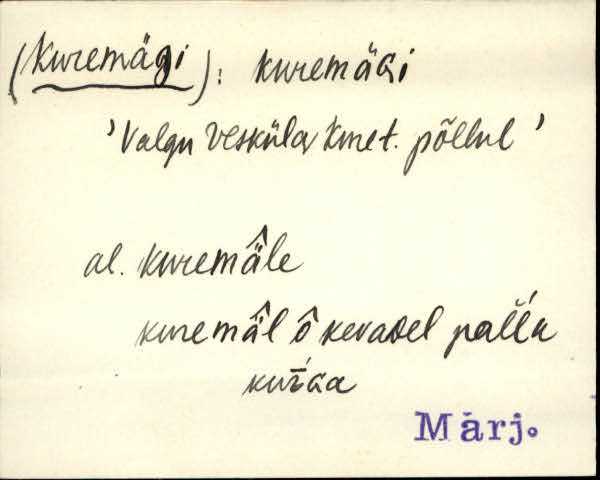 (Kuremägi): kuremäGi
'Valgu Vesküla kmet. põllul'
al. kuremä̂le
kuremä̂l ô kevaDel pallu
kurGa
Märj.